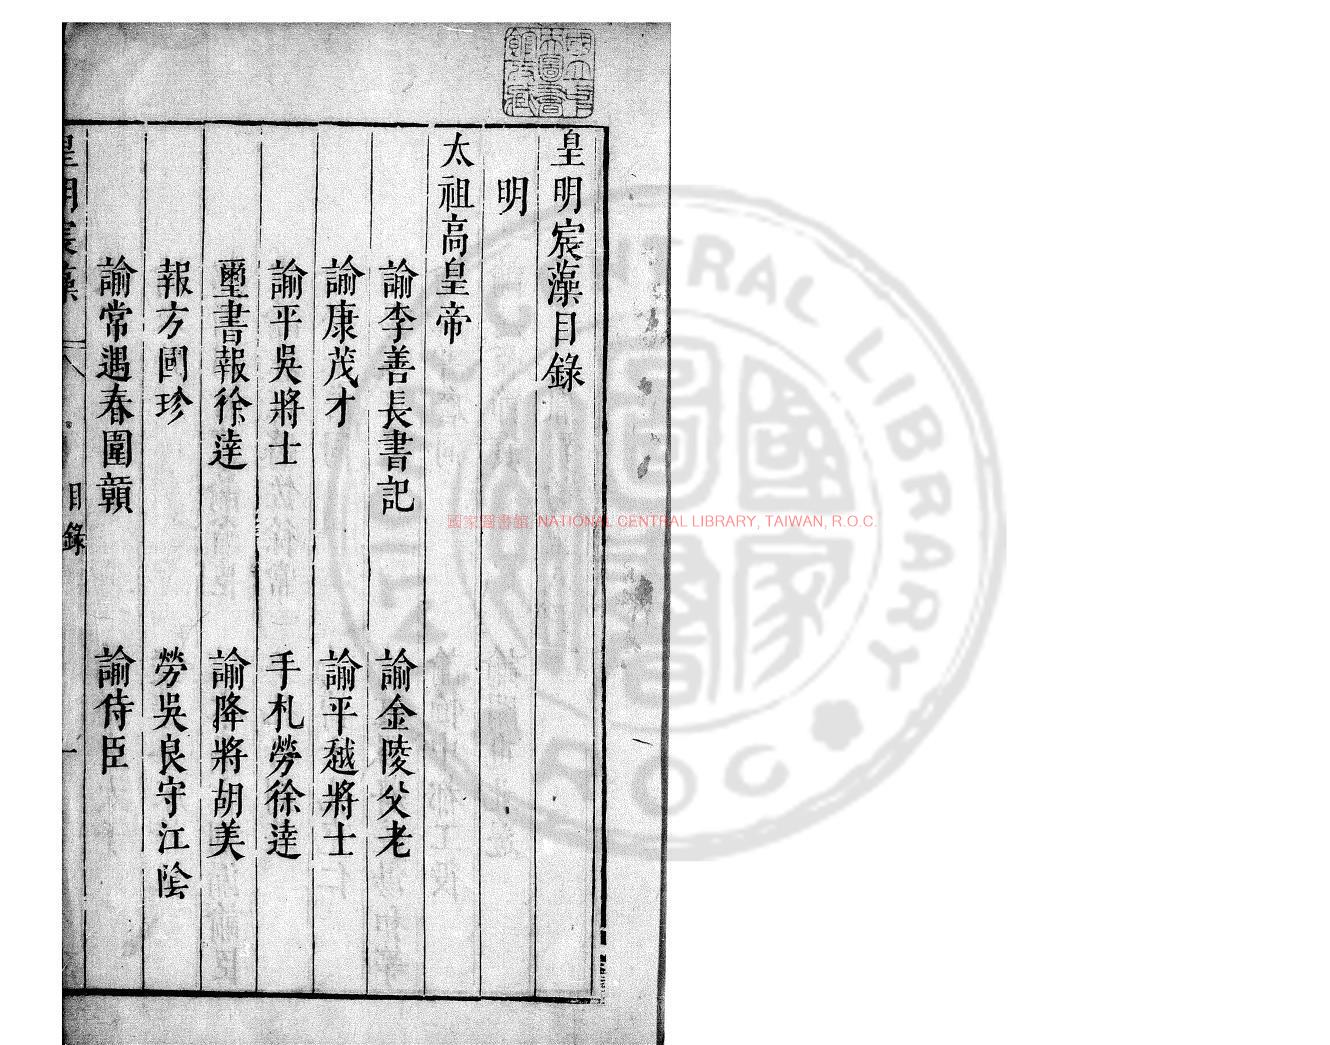 皇明宸藻目錄
明
太祖高皇帝
諭李善長書記　諭金陵父老
諭康茂才　諭平越將士
諭平吳將士　手札勞徐達
璽書報徐達　諭降將胡美
報方國珍　勞吳良守江陰
諭常遇春圍贛　諭侍臣
皇明宸藻　目錄　一
國家圖書館 NATIONAL CENTRAL LIBRARY, TAIWAN, R.O.C.
CENTRAL LIBRARY
ROC
國家圖書
國立中央圖書館收藏